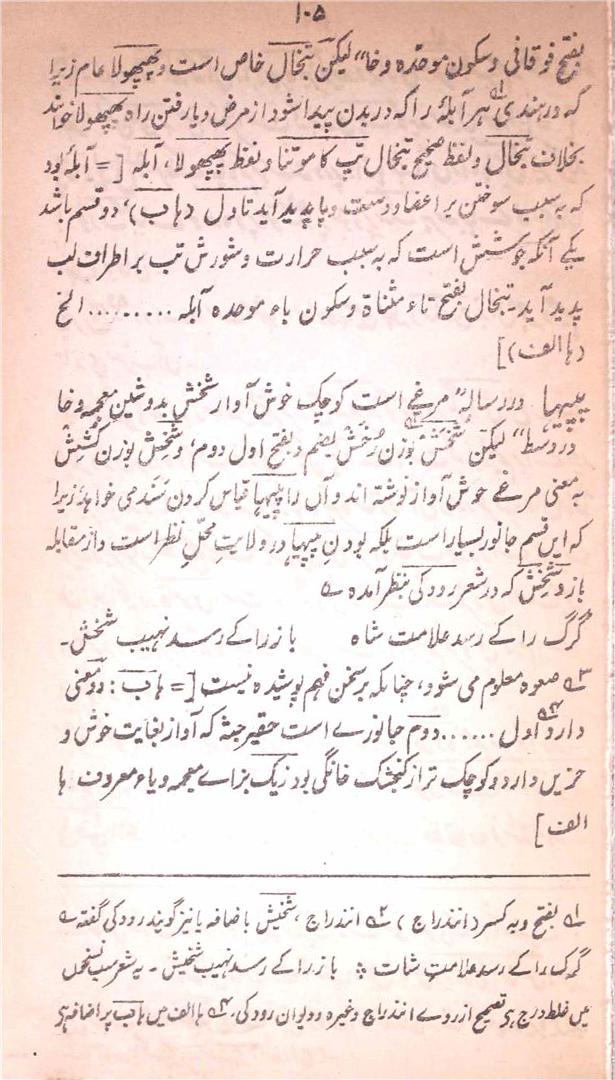 ۱۰۵
بفتح فوقانی و سکون موحّده و خا“ لیکن تبخال خاص است و پھپھولا عام زیرا
که در ہندی ہر آبلۂ را که در بدن پیدا شود از مرض و یا رفتن راه پھپھولا خوانند
بخلاف تبخال و لفظ صحیح تبخال تپ کا موتنا و لفظ پھپھولا، آبله [= آبلۂ بود
که به سبب سوختن بر اعضا و دست و پا پدید آید تاول (ہاب)، دو قسم باشد
یکے آنکه جوششی است که به سبب حرارت و شورش تب بر اطراف لب
پدید آید۔ تبخال بفتح تاء مثناة و سکون باء موحده آبله ......... الخ
(ہا الف)]
پپیہا در رساله ”مرغے است کوچک خوش آواز شخش بدو شین معجمه و خا
در وسط“ لیکن شخش بوزن رخش بضم و بفتح اول دوم، و شخِش بوزن کشش
به معنی مرغے خوش آواز نوشته اند و آں را پپیہا قیاس کردن سَندمی خواہد زیرا
که ایں قسم جانور بسیار است بلکه بودنِ پپیہا در ولایت محلِّ نظر است و از مقابله
باز و شخش که در شعر رودکی بنظر آمده ے
گرگ را کے رسد علامت شاه باز را کے رسد نہیب شخش۔
۳ے صعوه معلوم می شود، چنانکه بر سخن فہم پوشیده نیست [= ہاب: دو معنی
دارد ۴ے اول ...... دوم جانورے است حقیر جثه که آواز بغایت خوش و
حزیں دارد و کوچک تر از گنجشک خانگی بود زیک بزاے معجمه و یاء معروف ہا
الف]
۱ے بفتح و به کسر (انندراج) ۲ے انندراج، شخیش با ضافه یا نیز گویند رودکی گفته ے
گرگ را کے رسد علامتِ شات ؞ باز را کے رسد نہیب شخیش۔ یه شعر سب نسخوں
میں غلط درج ہے تصحیح از روے انندراج وغیرہ و دیوان رودکی۔ ۴ے ہا الف میں ہاب پر اضافہ ہے